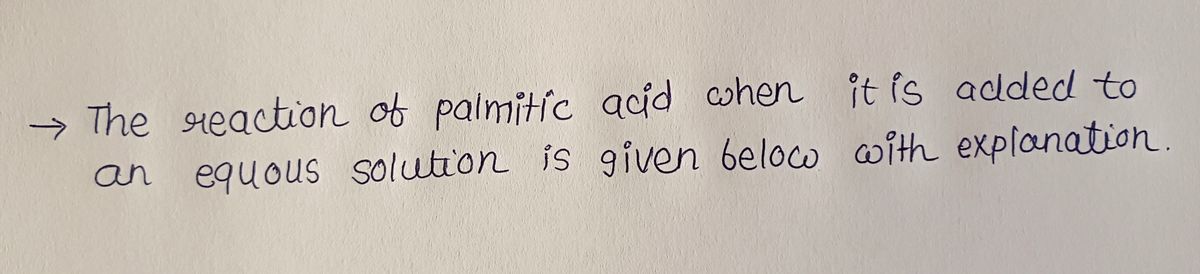 → The reaction of palmitic acid when it is added to
an equous solution is given below with explanation.